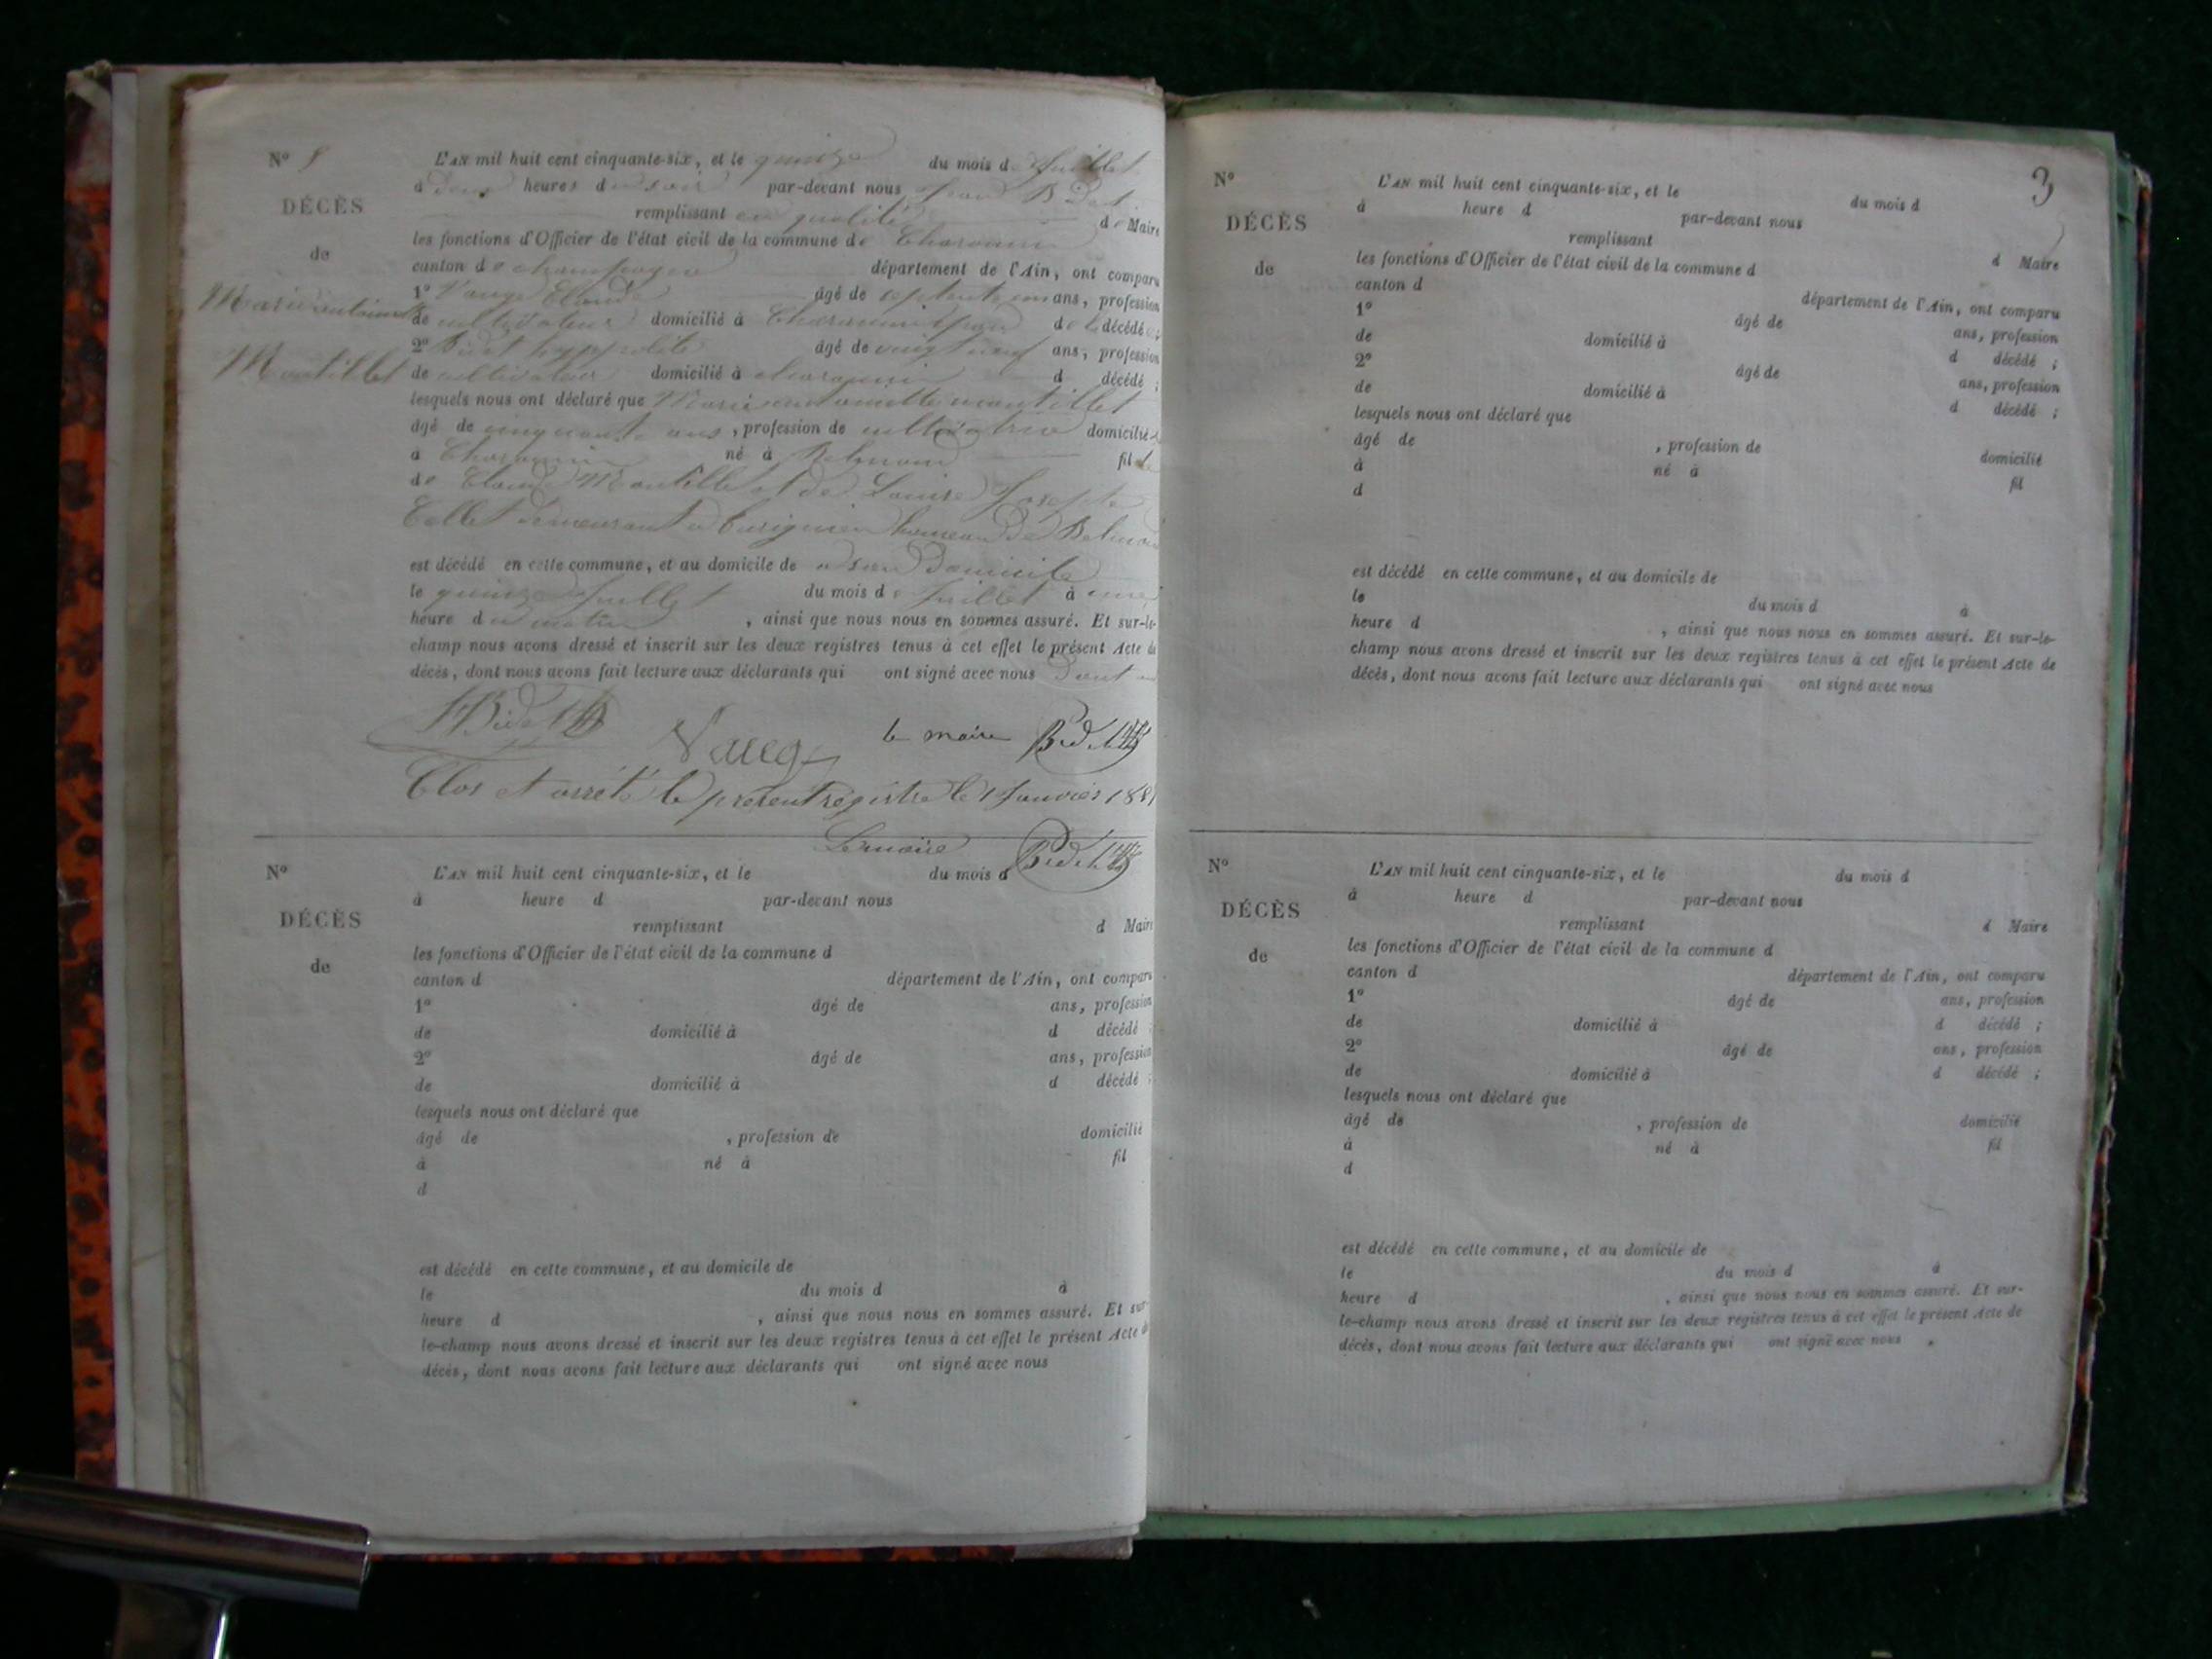 N° 5
DÉCÈS
de
Marie antoinette
Montillet
L'AN mil huit cent cinquante-six, et le quinze du mois de Juillet
à deux heures du soir par-devant nous Jean Bidet
remplissant en qualité de Maire
les fonctions d'Officier de l'état civil de la commune de Charancin
canton de champagne département de l'Ain, ont comparu
1° Vauge Claude âgé de septante ans, profession
de cultivateur domicilié à Charancin de la décédée ;
2° Bidet hyppolite âgé de vingt neuf ans, profession
de cultivateur domicilié à charancin d décédé ;
lesquels nous ont déclaré que Marie antoinette montillet
âgé de cinquante ans, profession de cultivatrice domicilié
à Charancin né à Belmont fil
de Claude Montillet et de Louise Josephte
Collet demeurant à hameau de Belmont
est décédé en cette commune, et au domicile de a son Domicile
le quinze Juillet du mois de Juillet à une
heure du matin, ainsi que nous nous en sommes assuré. Et sur-le-
champ nous avons dressé et inscrit sur les deux registres tenus à cet effet le présent Acte de
décès, dont nous avons fait lecture aux déclarants qui ont signé avec nous Dont
HBidet Vauge le maire Bidet
Clos et arrêté le present régistre le 1 Janvier
Le maire Bidet
N°
DÉCÈS
de
L'AN mil huit cent cinquante-six, et le du mois d
à heure d par-devant nous
remplissant d Maire
les fonctions d'Officier de l'état civil de la commune d
canton d département de l'Ain, ont comparu
1° âgé de ans, profession
de domicilié à d décédé ;
2° âgé de ans, profession
de domicilié à d décédé ;
lesquels nous ont déclaré que
âgé de , profession de domicilié
à né à fil
d
est décédé en cette commune, et au domicile de
le du mois d à
heure d , ainsi que nous nous en sommes assuré. Et sur-
le-champ nous avons dressé et inscrit sur les deux registres tenus à cet effet le présent Acte de
décès, dont nous avons fait lecture aux déclarants qui ont signé avec nous
3
N°
DÉCÈS
de
L'AN mil huit cent cinquante-six, et le du mois d
à heure d par-devant nous
remplissant d Maire
les fonctions d'Officier de l'état civil de la commune d
canton d département de l'Ain, ont comparu
1° âgé de ans, profession
de domicilié à d décédé ;
2° âgé de ans, profession
de domicilié à d décédé ;
lesquels nous ont déclaré que
âgé de , profession de domicilié
à né à fil
d
est décédé en cette commune, et au domicile de
le du mois d à
heure d , ainsi que nous nous en sommes assuré. Et sur-le-
champ nous avons dressé et inscrit sur les deux registres tenus à cet effet le présent Acte de
décès, dont nous avons fait lecture aux déclarants qui ont signé avec nous
N°
DÉCÈS
de
L'AN mil huit cent cinquante-six, et le du mois d
à heure d par-devant nous
remplissant d Maire
les fonctions d'Officier de l'état civil de la commune d
canton d département de l'Ain, ont comparu
1° âgé de ans, profession
de domicilié à d décédé ;
2° âgé de ans, profession
de domicilié à d décédé ;
lesquels nous ont déclaré que
âgé de , profession de domicilié
à né à fil
d
est décédé en cette commune, et au domicile de
le du mois d à
heure d , ainsi que nous nous en sommes assuré. Et sur-
le-champ nous avons dressé et inscrit sur les deux registres tenus à cet effet le présent Acte de
décès, dont nous avons fait lecture aux déclarants qui ont signé avec nous